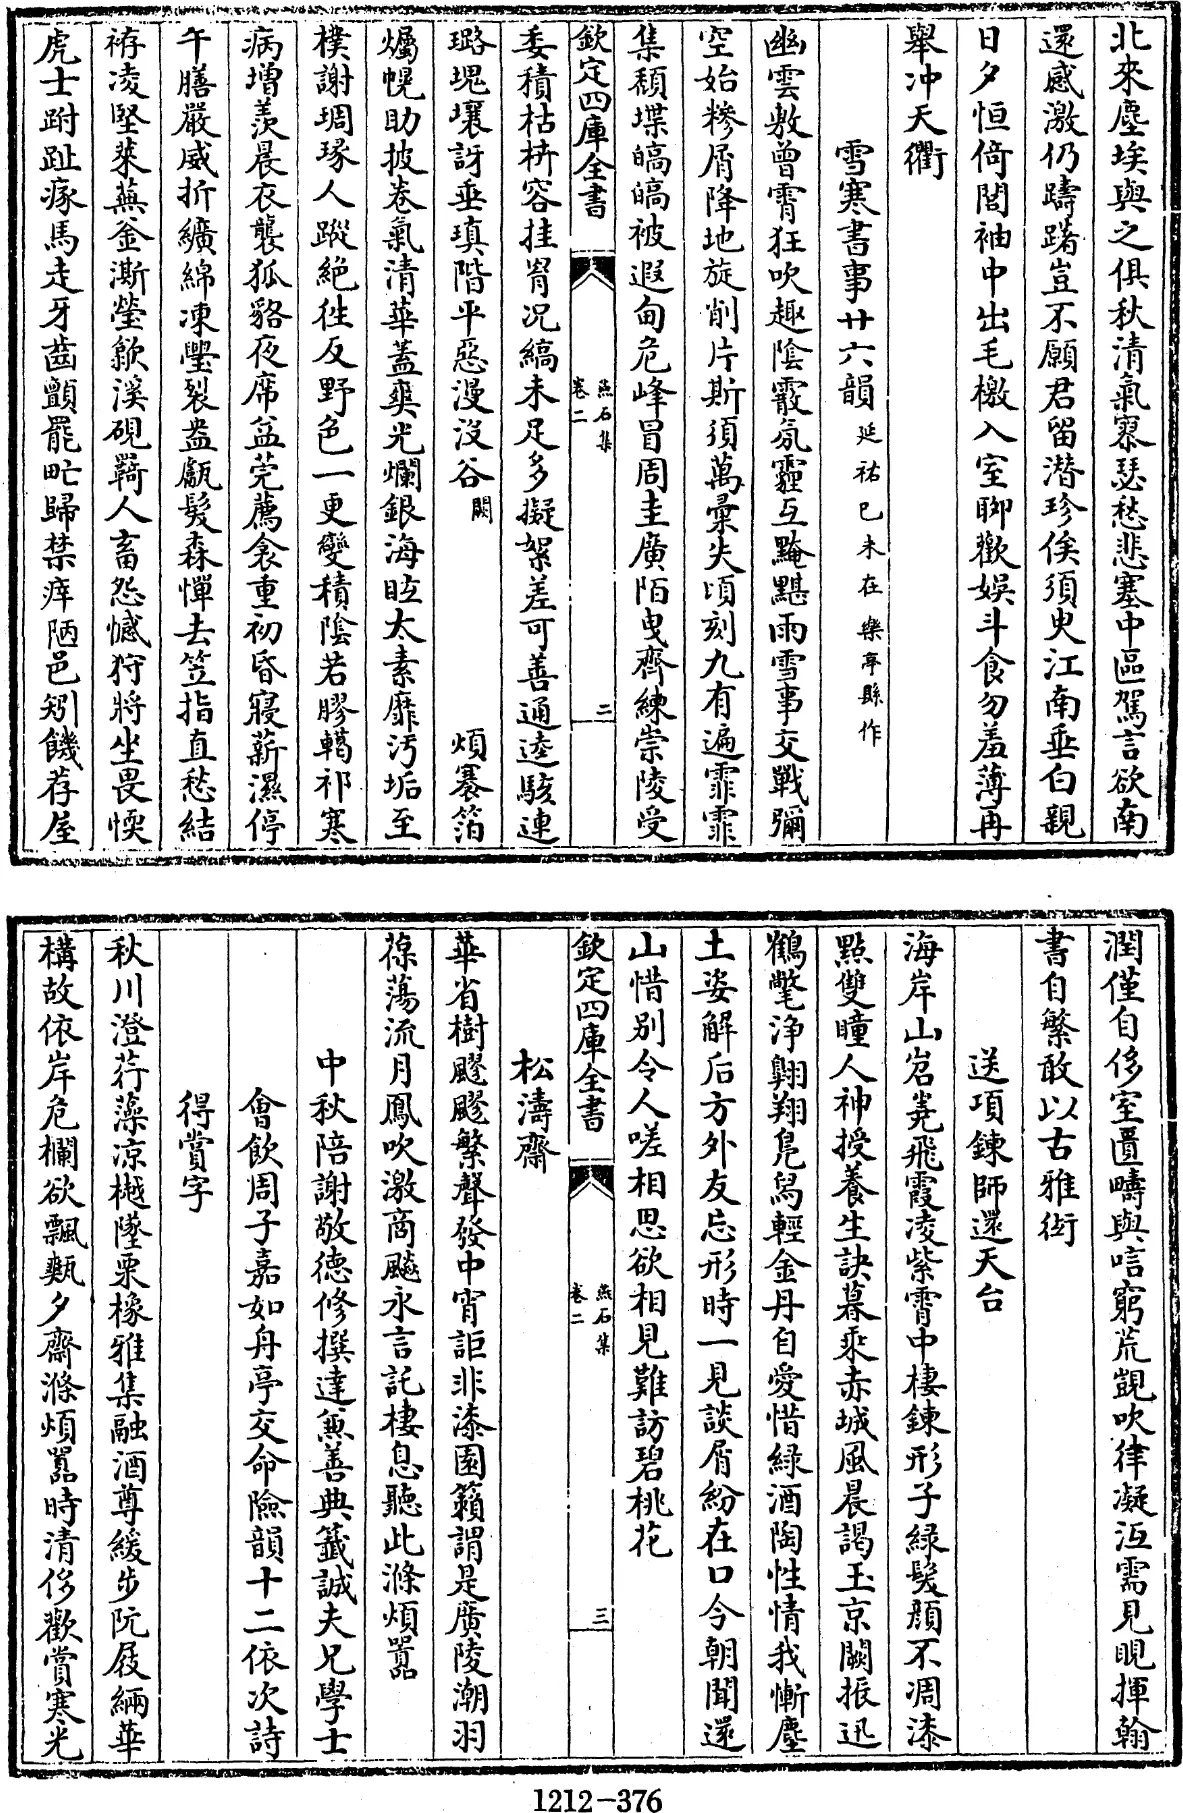 北來塵埃與之俱秋清氣寥瑟愁悲塞中區駕言欲南
還感激仍躊躇豈不願君留潛珍俟須臾江南垂白親
日夕恒倚閭袖中出毛檄入室聊歡娛斗食勿羞薄再
舉冲天衢
雪寒書事廿六韻延祐己未在樂亭縣作
幽雲敷曾霄狂吹趣陰霰氛霾互黤黮雨雪事交戰彌
空始糝屑降地旋削片斯須萬彙失頃刻九有遍霏霏
集頹堞皜皜被遐甸危峰冒周圭廣陌曳齊練崇陵受
欽定四庫全書
燕石集
卷二
二
委積枯枿容挂罥况縞未足多擬絮差可善通逵駭連
璐塊壤訝垂瑱階平惡漫没谷闕 煩褰箔
爥幌助披卷氣清華蓋爽光爛銀海眩太素靡汚垢至
樸謝琱琢人蹤絶徃反野色一更變積陰若膠轕祁寒
病增羡晨衣襲狐貉夜席益莞薦衾重初昏寢薪濕停
午膳嚴威折纊綿凍壘裂盎甗髮森憚去笠指直愁結
袸凌堅萊蕪釜澌瑩歙溪硯羇人畜怨憾狩將坐畏愞
虎士跗趾瘃馬走牙齒顫罷甿歸禁痒陋邑矧饑荐屋
潤僅自侈室匱疇與唁窮荒覬吹律凝沍需見晛揮翰
書自繁敢以古雅衒
送項鍊師還天台
海岸山岧嶤飛霞凌紫霄中棲鍊形子綠髮顔不凋漆
點雙瞳人神授養生訣暮乘赤城風晨謁玉京闕振迅
鶴氅浄翺翔鳧舄輕金丹自愛惜緑酒陶性情我慚塵
土姿解后方外友忘形時一見談屑紛在口今朝聞還
山惜别令人嗟相思欲相見難訪碧桃花
欽定四庫全書
燕石集
卷二
三
松濤齋
華省樹飂飂繁聲發中宵詎非漆園籟謂是廣陵潮羽
葆蕩流月鳳吹激商飈永言託棲息聽此滌煩嚣
中秋陪謝敬德修撰達兼善典籖誠夫兄學士
會飲周子嘉如舟亭交命險韻十二依次詩
得賞字
秋川澄荇藻凉樾墜栗橡雅集融酒尊緩步阮屐緉華
構故依岸危欄欲飄颺夕齋滌煩嚣時清侈歡賞寒光
1212-376